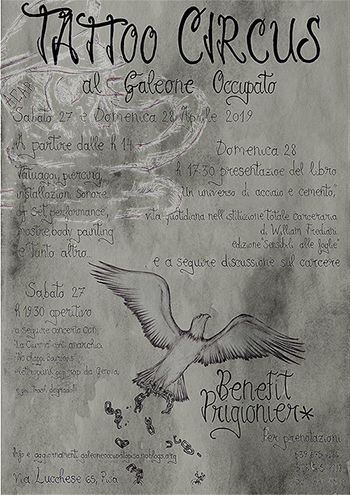 TATTOO CIRCUS
al Galeone Occupato
Sabato 27 e Domenica 28 Aprile 2019
A partire dalle h 14
Tatuaggi, piercing,
installazioni Sonore
dj Set, performance,
mostre, body painting
e tanto altro...
Domenica 28
h 17.30 presentazione del libro
Un universo di acciaio e cemento,
vita quotidiana nell'istituzione totale carceraria
di William Frediani
edizione "Sensibili alle foglie"
e a seguire discussione sul carcere
Sabato 27
h 19.30 aperitivo
a seguire concerto con
anarchia
da Genova,
Benefit
Prigionier*
Per prenotazioni
Info e aggiornamenti
Via Lucchese 65, Pisa